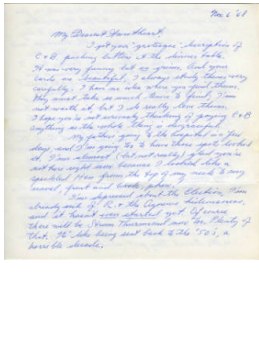 Nov 6 '68
My Dearest Sweetheart,
I got your "grotesque" description of
C & B picking butter at the dinner table.
It was very funny but so grim. And your
cards are beautiful. I always study them very
carefully. I have no idea where you find them,
they must take so much time to find. I'm
not worth it, but I do really love them.
I hope you're not seriously thinking of paying C & B
anything as the whole thing is disgraceful.
My going to the hospital in a few
days, and I'm going to to have those spots looked
at. I'm almost (but not really) glad you're
not here right now because I looked like a
speckled Hen from the top of my neck to my
navel, front and back,
I'm depressed about the Election. I'm
already sick of R. & the Agnews
and it hasn't even started yet. Of course
there will be Strom Thurmond now too. Plenty of
that. It's like being sent back to the '50's, a
horrible decade.